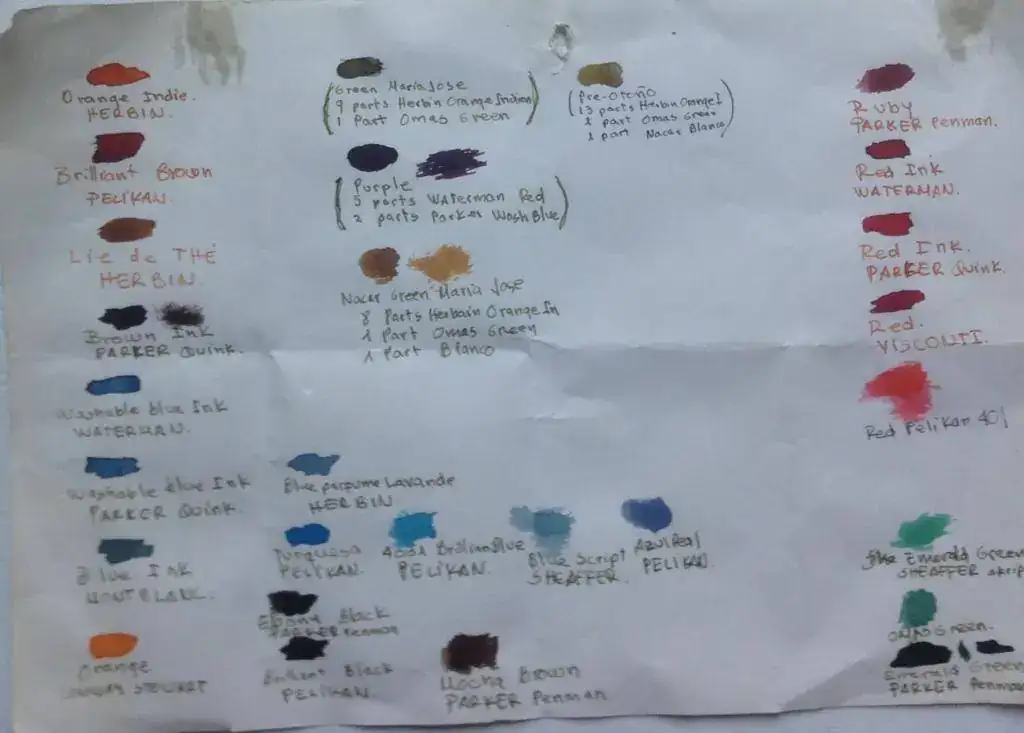 Orange Indie.
HERBIN.
Brilliant Brown
PELIKAN.
Lie de THÉ
HERBIN.
Brown Ink
PARKER Quink.
Washable blue Ink
WATERMAN.
Washable blue Ink
PARKER Quink.
Blue Ink
MONTBLANC.
Orange
Green MaríaJose
9 parts Herbin Orange Indian
1 Part Omas Green
Purple
5 parts WATerman Red
2 parts Parker Wash Blue
Nacar Green María Jose
8 Parts Herbain Orange In
1 Part Omas Green
1 Part Blanco
Pre-Otoño
13 parts Herbin Orange I
1 part Omas Green
1 part Nacar Blanco
Blue parfume Lavande
HERBIN
Turquesa
PELIKAN.
4001 BrillianBlue
PELIKAN.
Blue Script
SHEAFFER.
Azul Real
PELIKAN.
Ebony Black
PARKER Penman
Brillant Black
PELIKAN.
Mocha Brown
PARKER Penman
Ruby
PARKER Penman.
Red Ink
WATERMAN.
Red Ink.
PARKER Quink.
Red.
VISCONTI.
Red Pelikan 401
Emerald Green
SHEAFFER skrip
OMAS Green.
Emerald Green
PARKER Penman